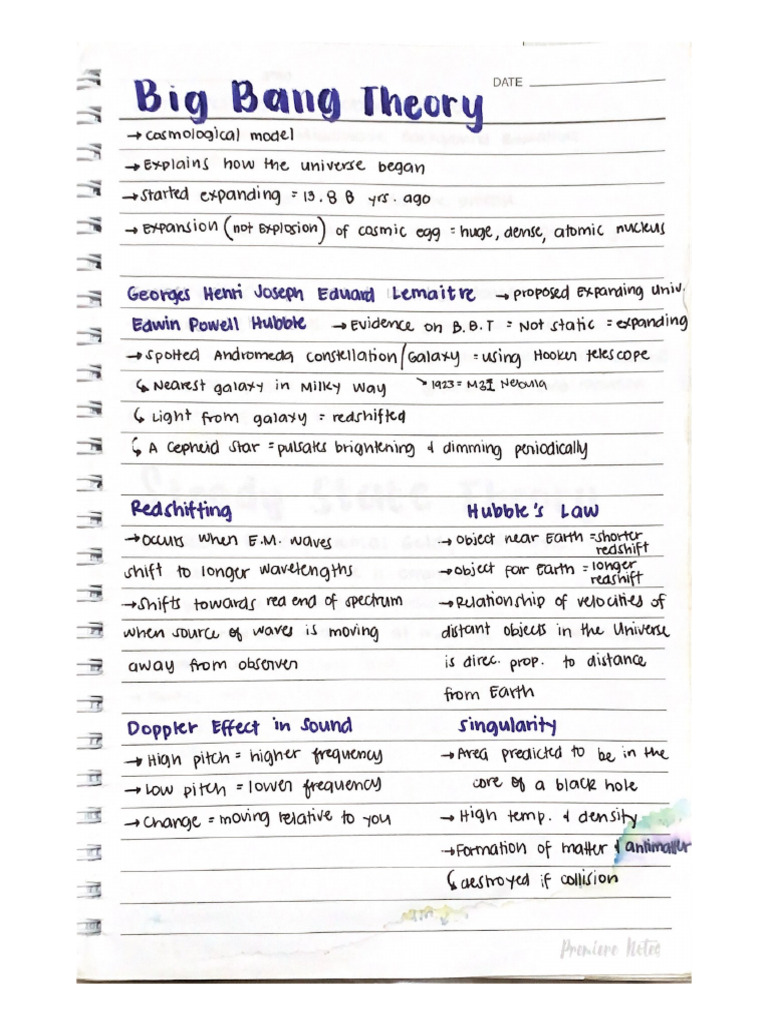 DATE
Big Bang Theory
→ cosmological model
→ Explains how the universe began
→ Started expanding = 13.8 B yrs. ago
→ Expansion (not Explosion) of cosmic egg = huge, dense, atomic nucleus
Georges Henri Joseph Eduard Lemaitre → proposed Expanding Univ.
Edwin Powell Hubble → Evidence on B.B.T = Not static = expanding
→ Spotted Andromeda constellation/Galaxy = using Hooker telescope
↳ Nearest galaxy in Milky Way ↘ 1923 = M31 Nebula
↳ Light from galaxy = redshifted
↳ A Cepheid Star = pulsates brightening & dimming periodically
Redshifting
→ Occurs when E.M. waves
shift to longer wavelengths
→ Shifts towards red end of spectrum
when source of waves is moving
away from observer
Hubble's Law
→ Object near Earth = shorter
redshift
→ Object far Earth = longer
redshift
→ Relationship of velocities of
distant objects in the Universe
is direc. prop. to distance
from Earth
Doppler Effect in Sound
→ High pitch = higher frequency
→ Low pitch = lower frequency
→ Change = moving relative to you
Singularity
→ Area predicted to be in the
core of a black hole
→ High temp. & density
→ Formation of matter & antimatter
↳ destroyed if collision
Premiere Notes